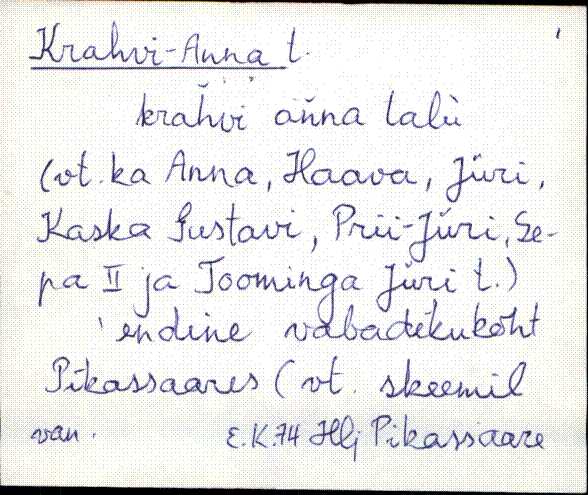 Krahvi-Anna t.
krahvi ańna talù
(vt. ka Anna, Haava, Jüri,
Kaska Gustavi, Prii-Jüri, Se-
pa II ja Toominga Jüri t.)
endine vabadikukoht
Pikassaares (vt. skeemil
van. E.K. 74 Hlj Pikassaare